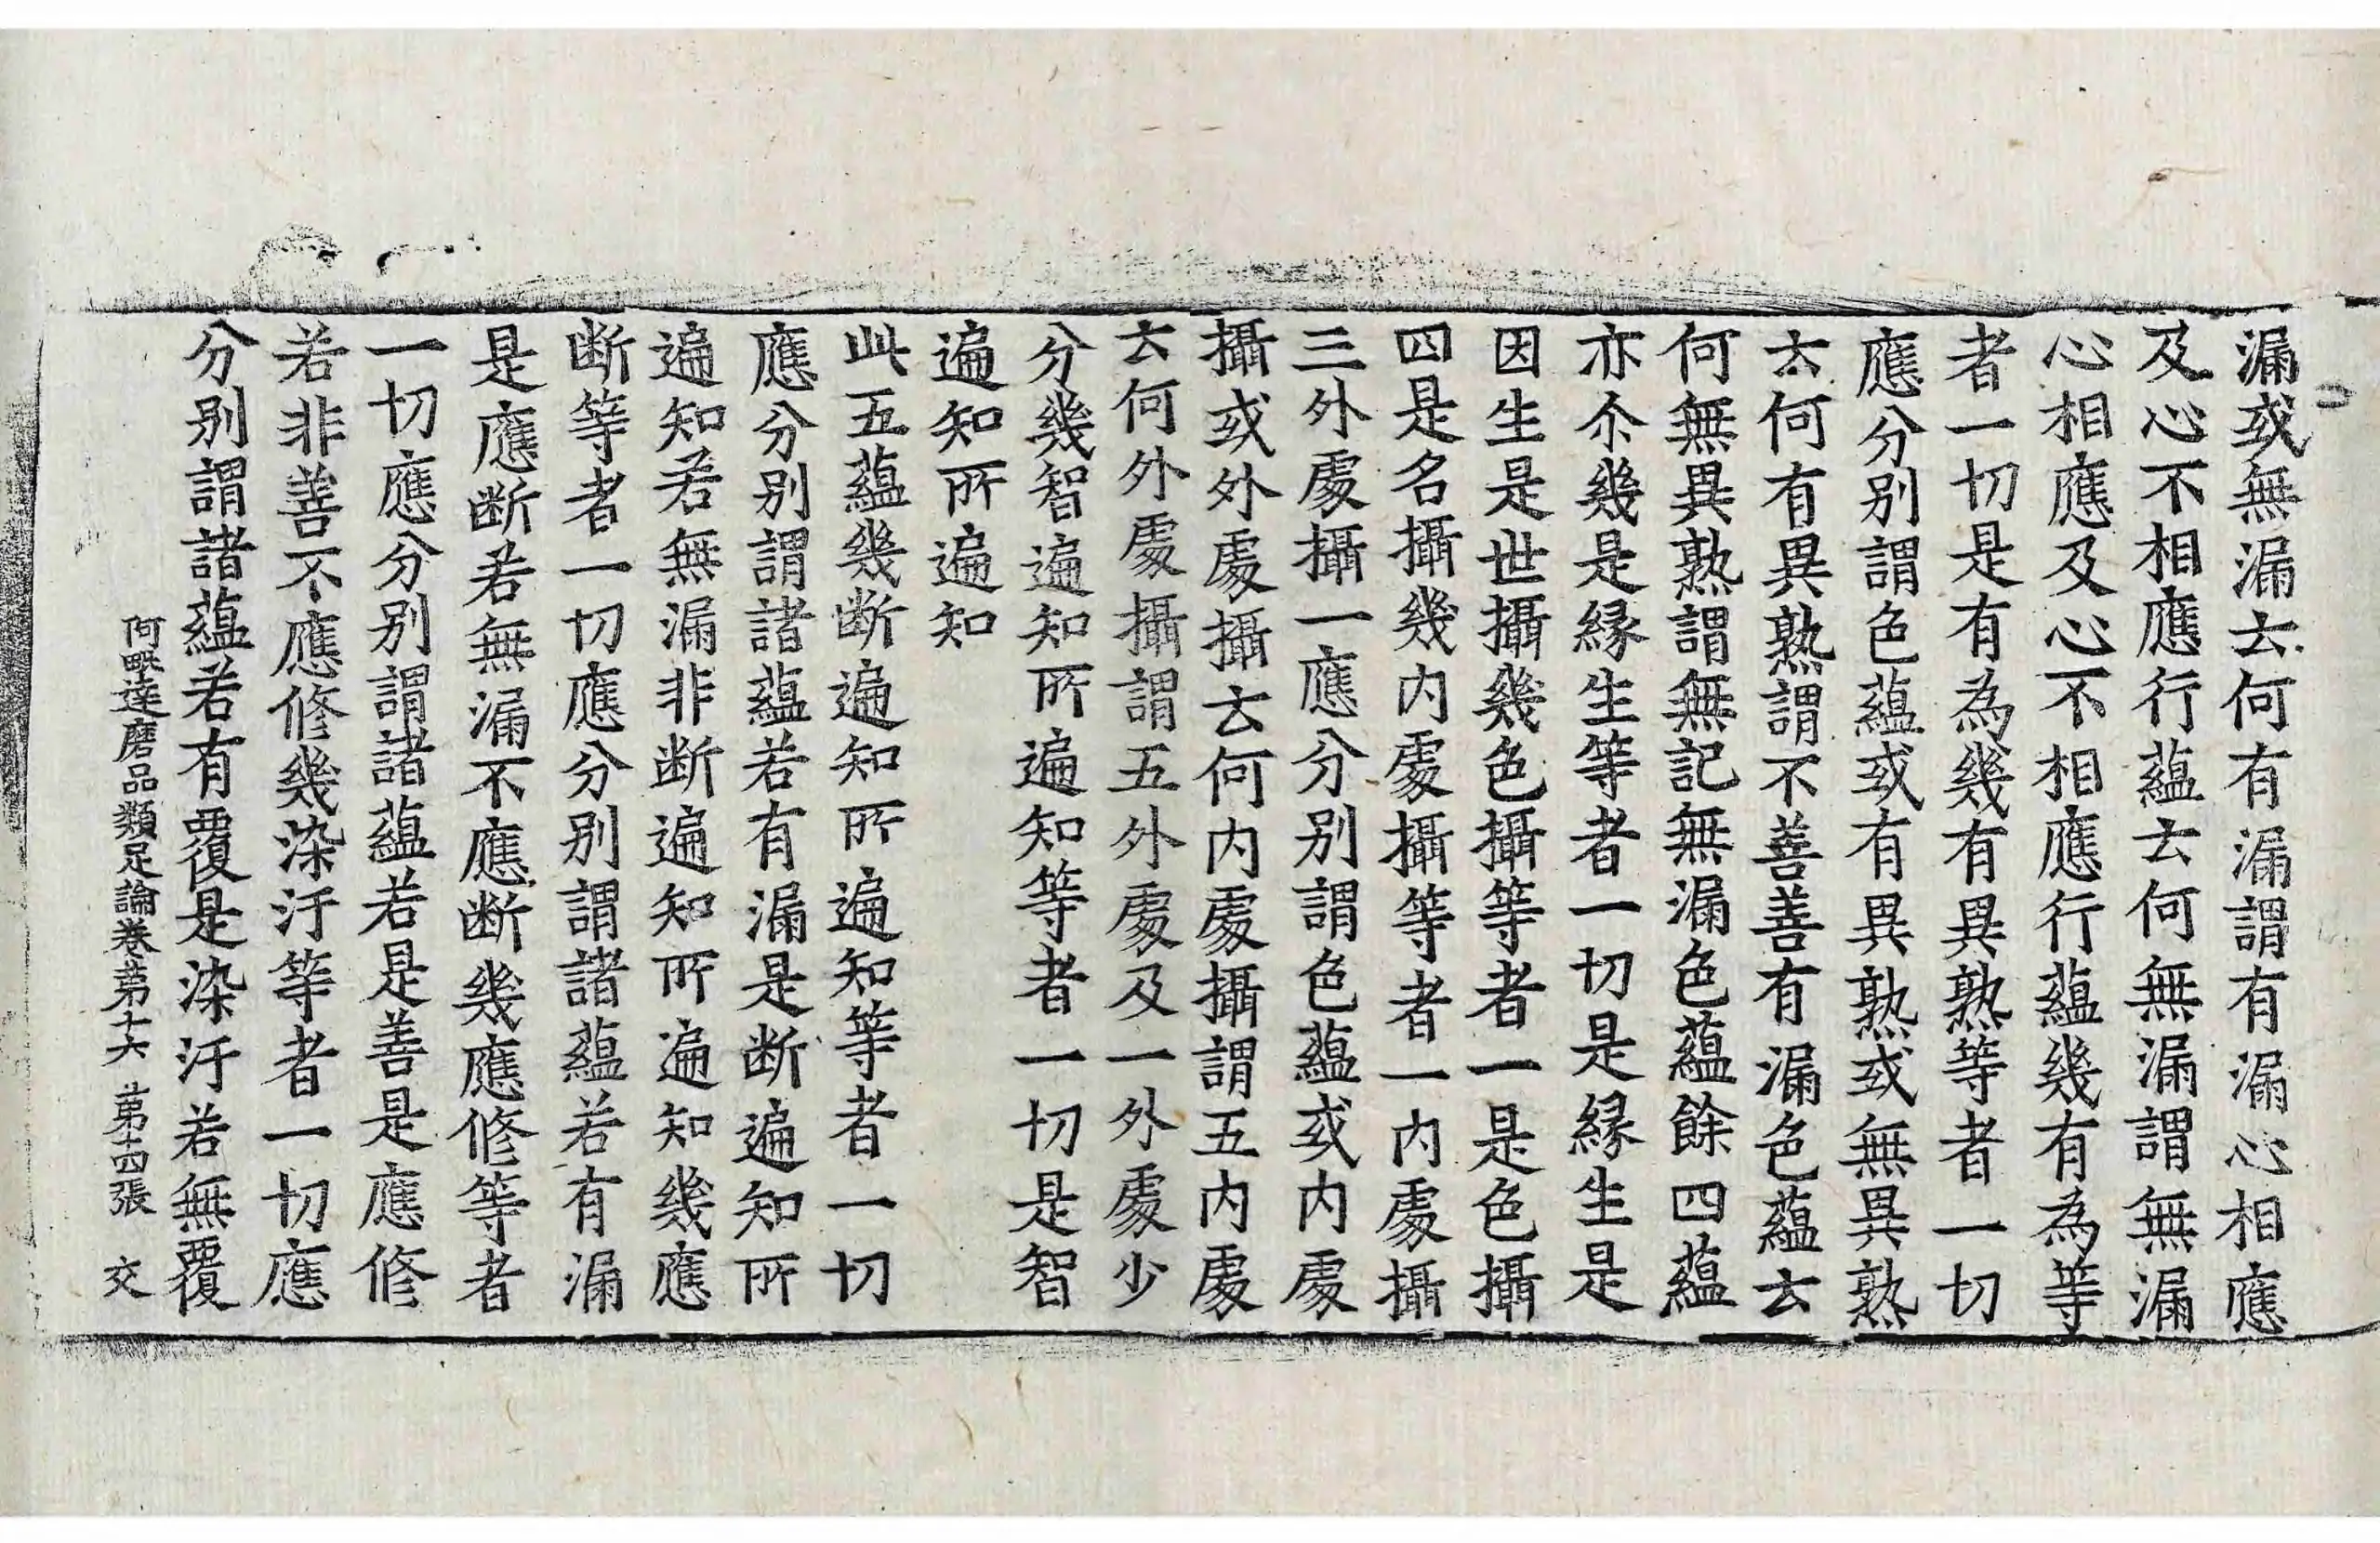 漏或無漏去何有漏謂有漏心相應
及心不相應行蘊去何無漏謂無漏
心相應及心不相應行蘊幾有為等
者一切是有為幾有異熟等者一切
應分别謂色蘊或有異熟或無異熟
去何有異熟謂不善善有漏色蘊去
何無異熟謂無記無漏色蘊餘四蘊
亦尒幾是緣生等者一切是緣生是
因生是世攝幾色攝等者一是色攝
四是名攝幾内處攝等者一内處攝
三外處攝一應分别謂色蘊或内處
攝或外處攝去何内處攝謂五内處
去何外處攝謂五外處及一外處少
分幾智遍知所遍知等者一切是智
遍知所遍知
此五蘊幾断遍知所遍知等者一切
應分别謂諸蘊若有漏是断遍知所
遍知若無漏非断遍知所遍知幾應
断等者一切應分别謂諸蘊若有漏
是應断若無漏不應断幾應修等者
一切應分别謂諸蘊若是善是應修
若非善不應修幾染汙等者一切應
分别謂諸蘊若有覆是染汙若無覆
阿毗達磨品類足論卷第十六 第十四張 交